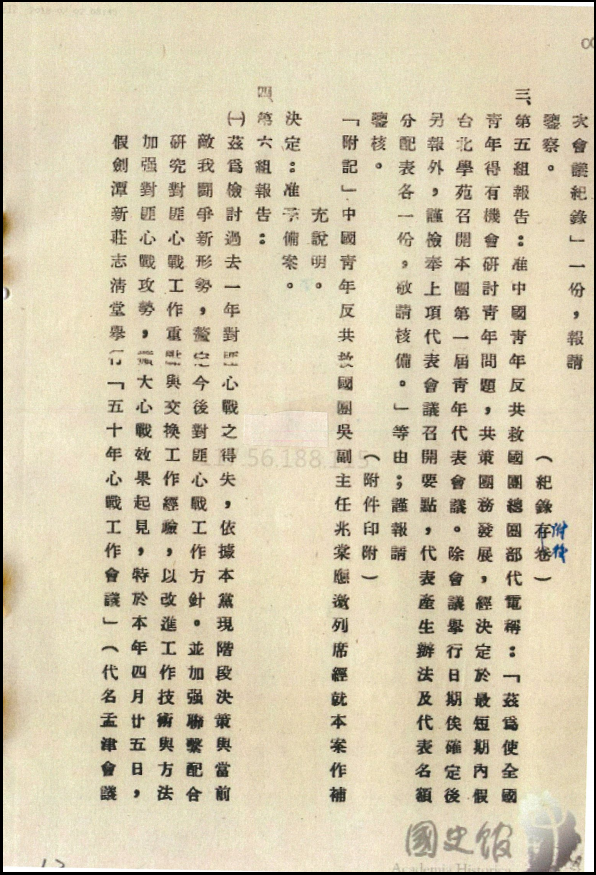 次會議紀錄」一份，報請
鑒察。（紀錄存卷）
附接
三、第五組報告：准中國青年反共救國團總團部代電稱：「茲為使全國
青年得有機會研討青年問題，共策團務發展，經決定於最短期內假
台北學苑召開本團第一屆青年代表會議。除會議舉行日期俟確定後
另報外，謹檢奉上項代表會議召開要點，代表產生辦法及代表名額
分配表各一份，敬請核備。」等由；謹報請
鑒核。（附件印附）
「附記」中國青年反共救國團吳副主任兆棠應邀列席經就本案作補
充說明。
決定：准予備案。
四、第六組報告：
㈠茲為檢討過去一年對匪心戰之得失，依據本黨現階段決策與當前
敵我鬪爭新形勢，釐定今後對匪心戰工作方針。並加强聯繫配合
研究對匪心戰工作重點與交換工作經驗，以改進工作技術與方法
加强對匪心戰攻勢，擴大心戰效果起見，特於本年四月廿五日，
假劍潭新莊志清堂舉行「五十年心戰工作會議」（代名孟津會議
國史館
Academia Historica